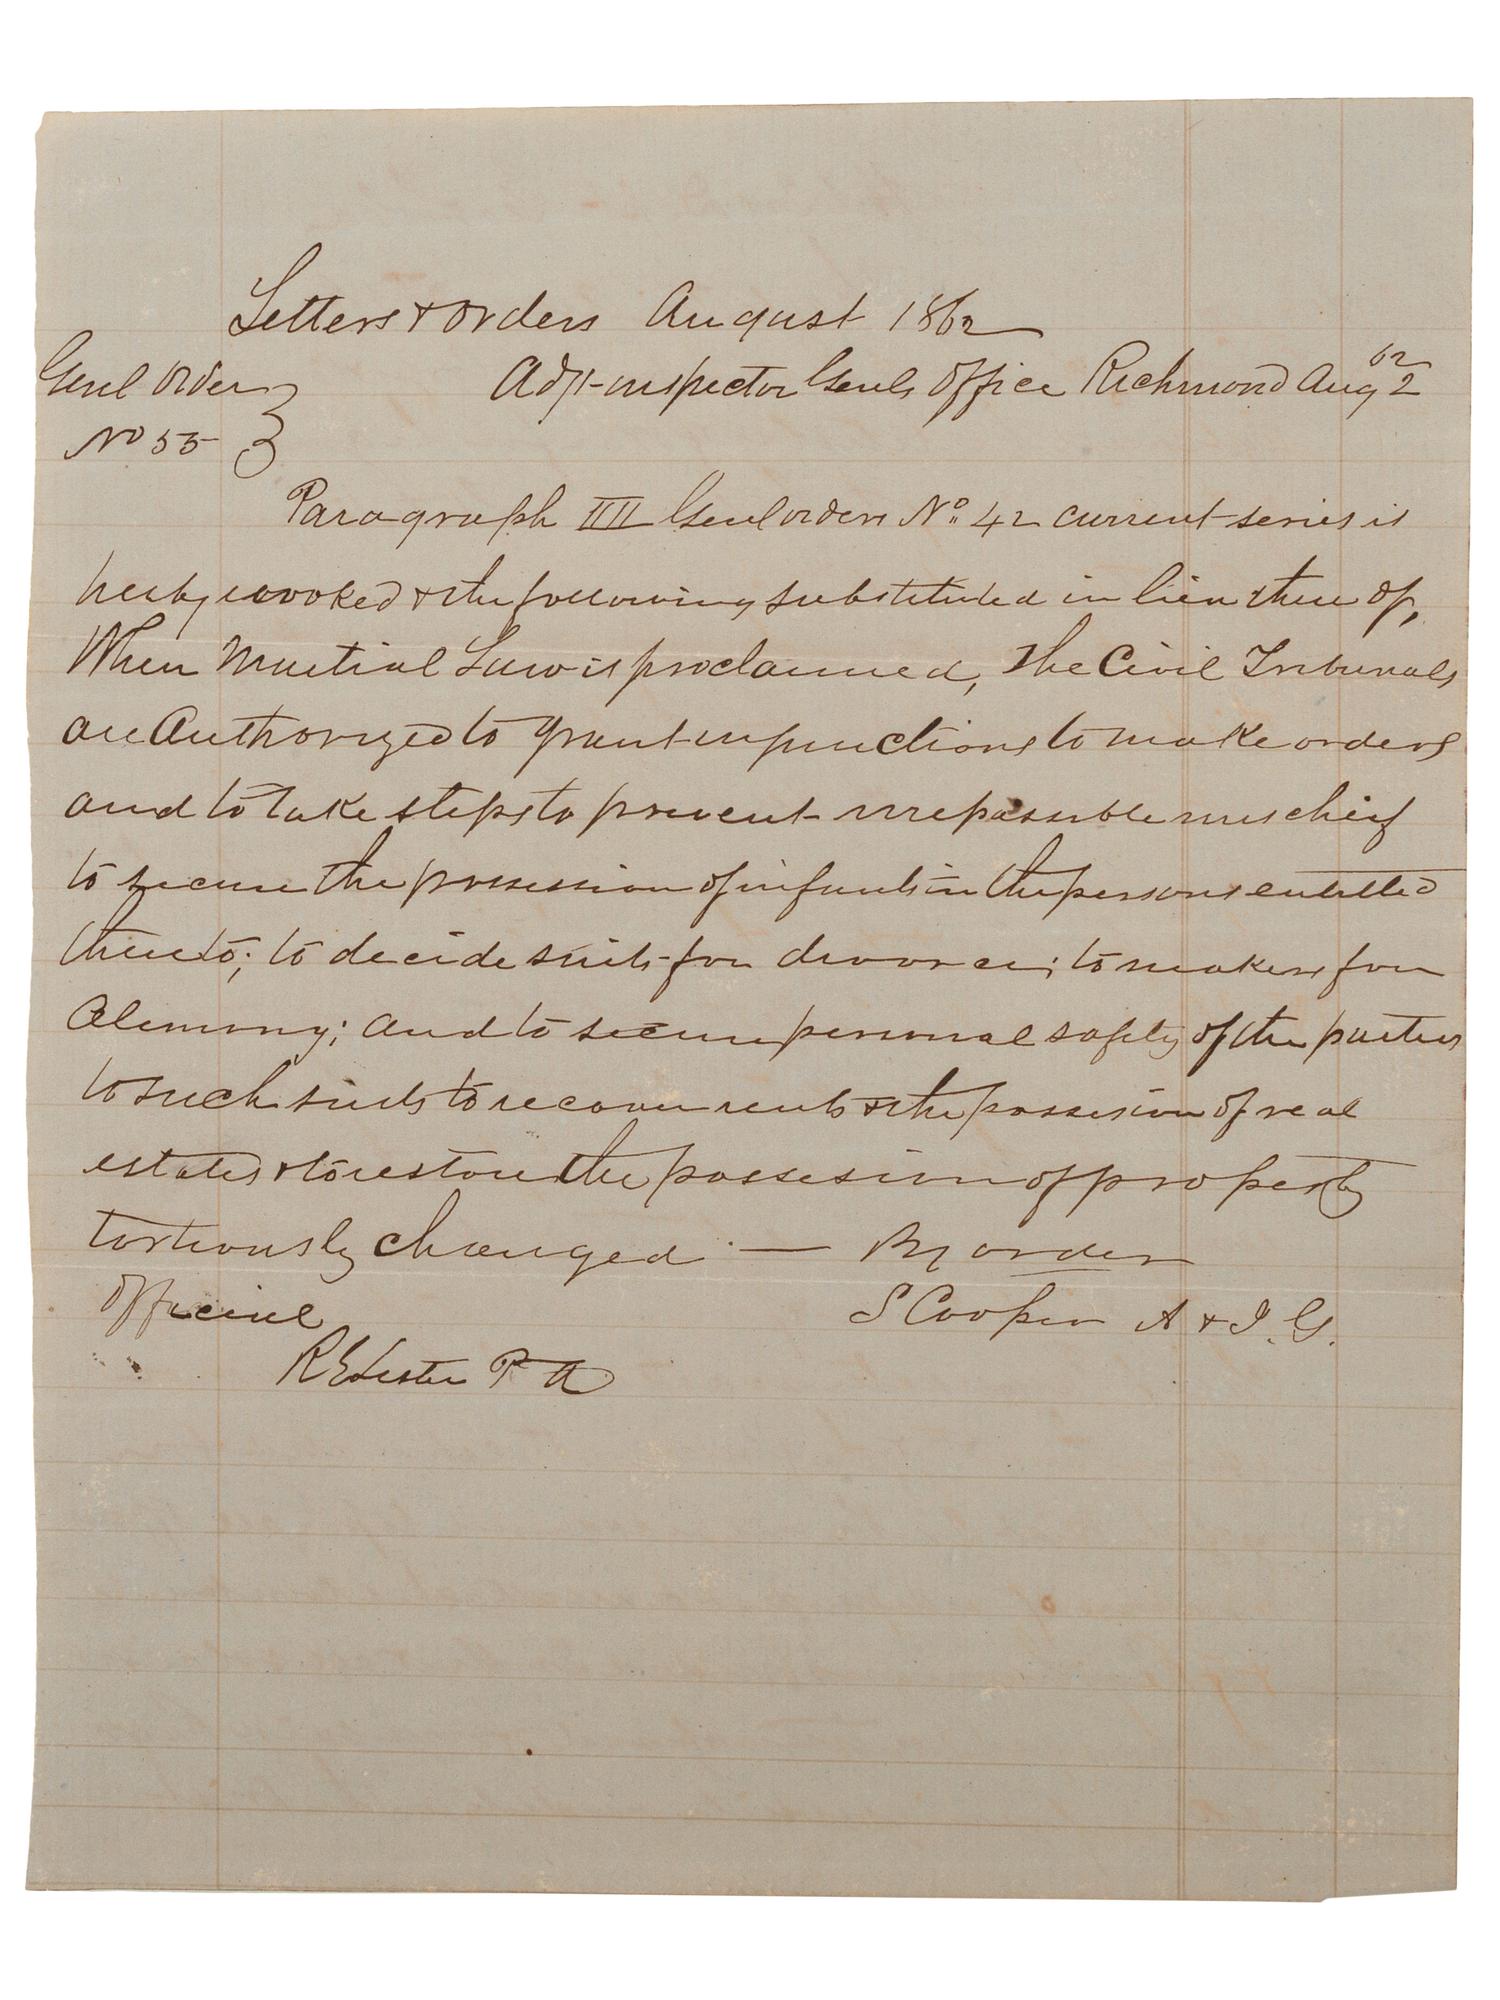 Letters & Orders August 1862
Genl Order
No 55
Adjt-inspector Genls Office Richmond Aug 2 62
Paragraph IIII Genl orders No. 42 current series is
herby revoked & the following substituted in lieu there of,
When Martial Law is proclaimed, The Civil Tribunals
are Authorized to grant injunctions to make orders
and to take steps to prevent irrepassible mischief
to secure the possession of infants in the persons entitled
thereto; to decide suits for divorce; to makers for
Alimony; and to secure personal safety of the parties
to such suits to recover rents & the possesion of real
estates & to restore the possesion of property
tortiously changed. — By order
Official S Cooper A & I. G.
R E Lester P A